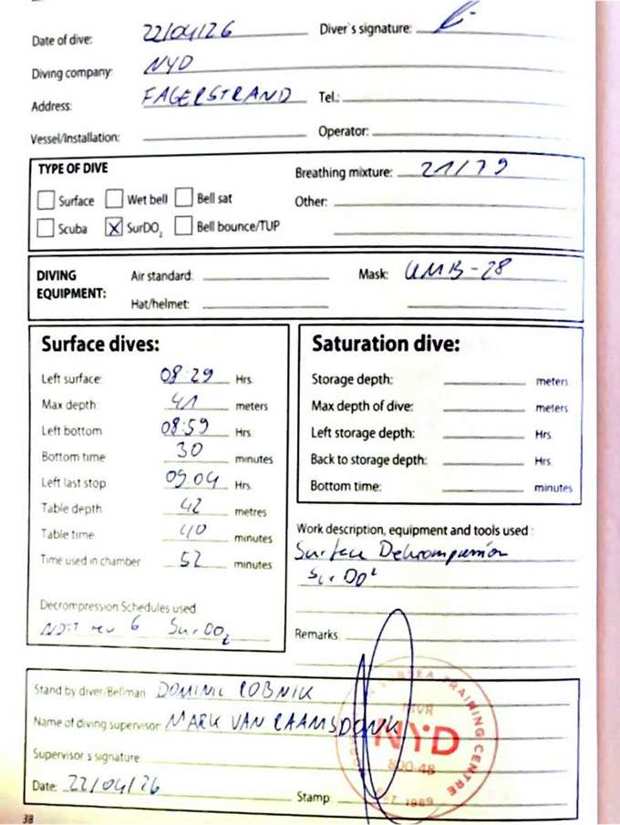 Date of dive: 22/04/26 Diver's signature:
Diving company: NYD
Address: FAGERSTRAND Tel.:
Vessel/Installation: Operator:
TYPE OF DIVE
Breathing mixture: 21/79
Surface Wet bell Bell sat Other:
Scuba X SurDO₂ Bell bounce/TUP
DIVING EQUIPMENT: Air standard: Mask: KMB-28
Hat/helmet:
Surface dives:
Left surface: 08:29 Hrs
Max depth: 41 meters
Left bottom 08:59 Hrs
Bottom time 30 minutes
Left last stop 09:04 Hrs.
Table depth 42 metres
Table time 40 minutes
Time used in chamber 52 minutes
Decrompression Schedules used
rev 6 SurDO₂
Saturation dive:
Storage depth: meters
Max depth of dive: meters
Left storage depth: Hrs
Back to storage depth: Hrs
Bottom time: minutes
Work description, equipment and tools used :
Surface Decompression
SurDO²
Remarks:
Stand by diver/Bellman: DOMINIK KOBNIK
Name of diving supervisor: MARK VAN RAAMSDONK
Supervisor's signature
Date: 22/04/26 Stamp
TRAINING CENTRE
NYD
EST 1969
38